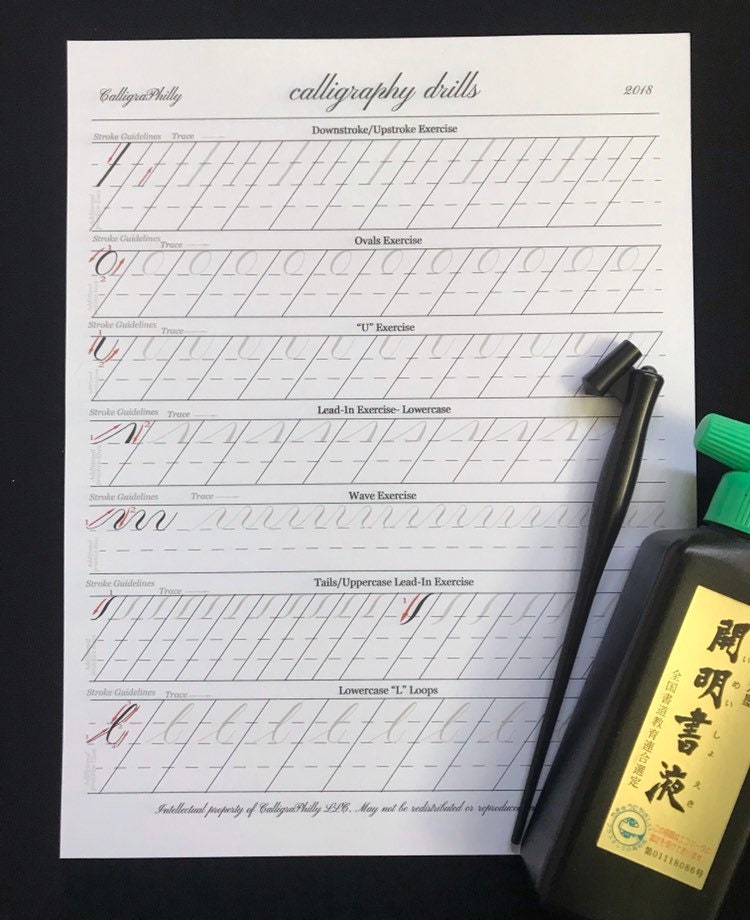 CalligraPhilly
calligraphy drills
2018
Downstroke/Upstroke Exercise
Stroke Guidelines Trace
Ovals Exercise
Stroke Guidelines Trace
1
2
"U" Exercise
Stroke Guidelines Trace
1
2
Lead-In Exercise- Lowercase
Stroke Guidelines Trace
1
2
Wave Exercise
Stroke Guidelines Trace
1
2
Tails/Uppercase Lead-In Exercise
Stroke Guidelines Trace
1
1
Lowercase "L" Loops
Stroke Guidelines Trace
Intellectual property of CalligraPhilly LLC. May not be redistributed or
開明書液
めいしょえき
全国書道教育連合選定
第01118086号